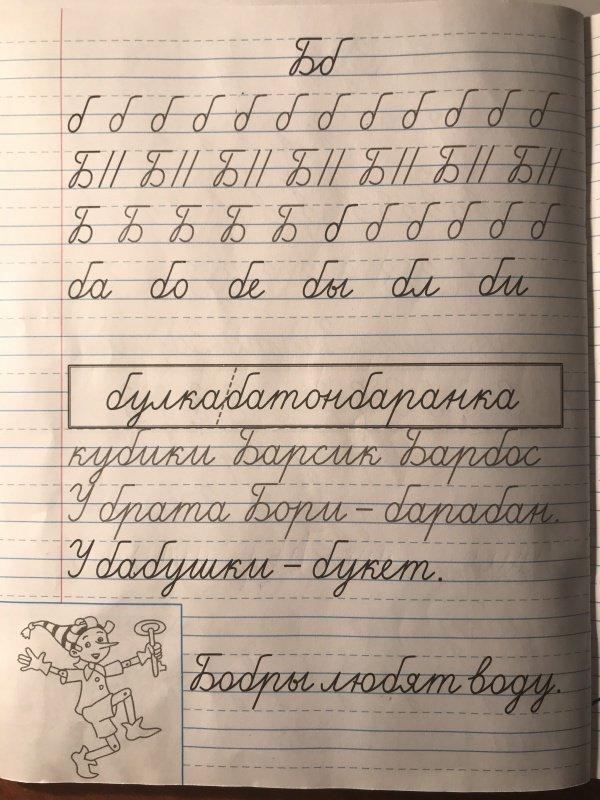 Бб
б б б б б б б б б б б б
Б// Б// Б// Б// Б// Б// Б//
Б Б Б Б Б б б б б б б
ба бо бе бы бл би
булкабатонбаранка
кубики Барсик Барбос
У брата Бори – барабан.
У бабушки – букет.
Бобры любят воду.